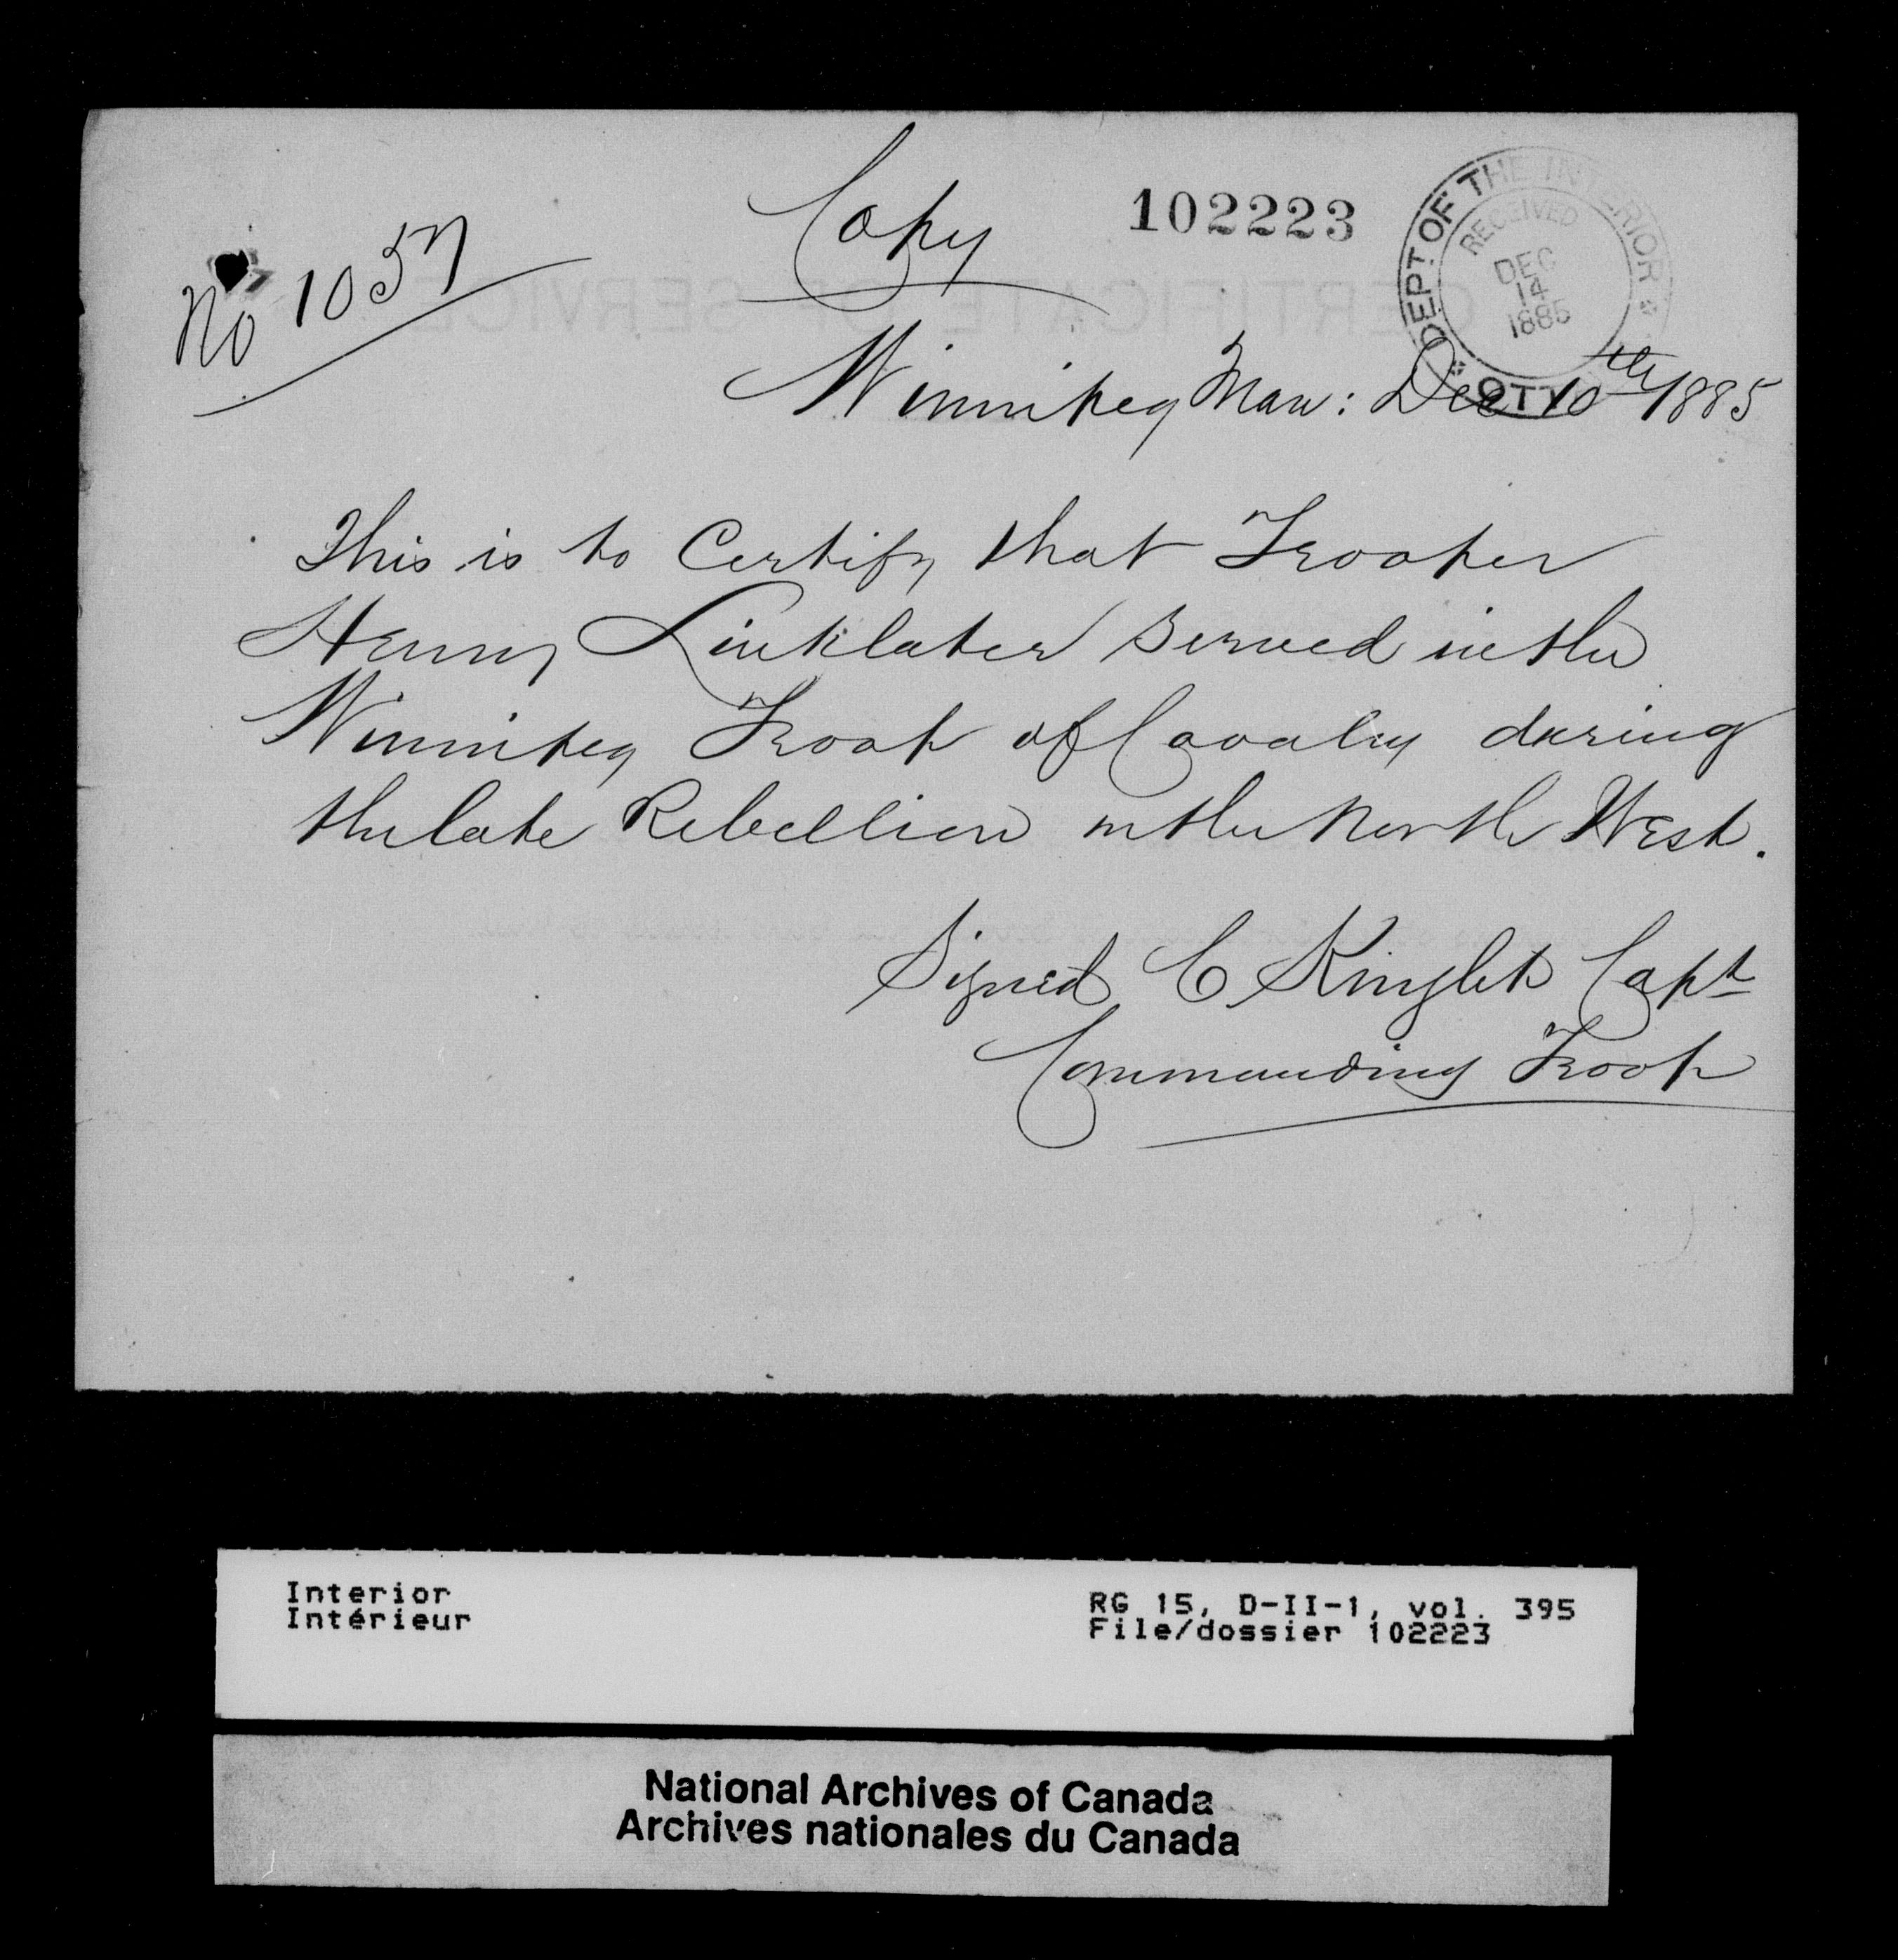 No 1057
Copy
102223
DEPT OF THE INTERIOR
RECEIVED
DEC
14
1885
OTT
Winnipeg Man: Dec 10th 1885
This is to Certify that Trooper
Henry Linklater served in the
Winnipeg Troop of Cavalry during
the late Rebellion in the North West.
Signed C Knight Capt
Commanding Troop
Interior
Intérieur
RG 15, D-II-1, vol. 395
File/dossier 102223
National Archives of Canada
Archives nationales du Canada